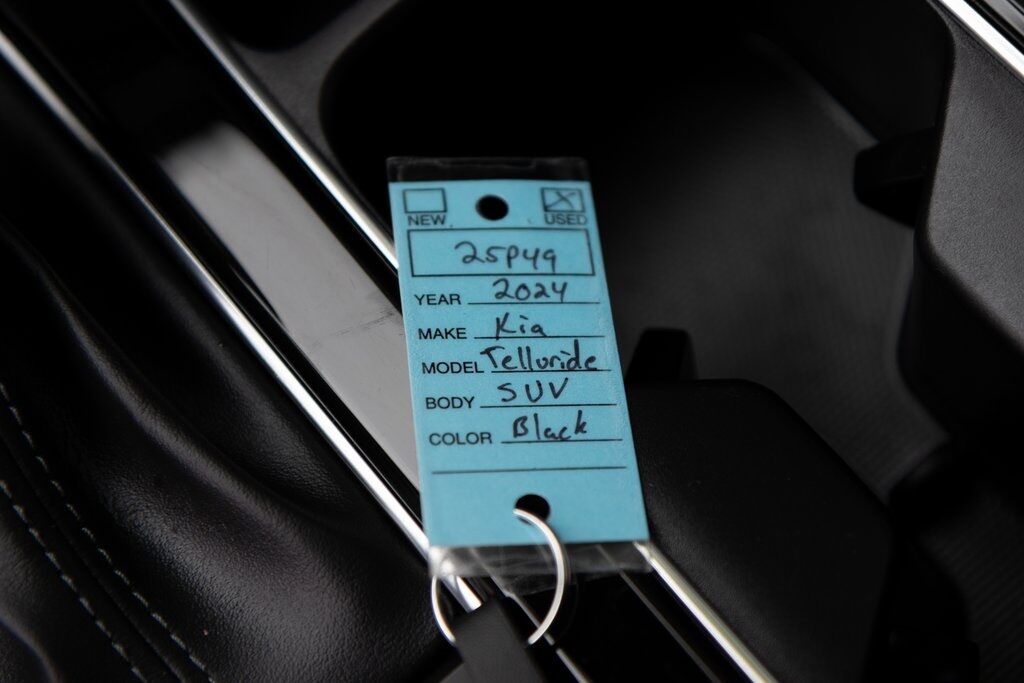 NEW USED
25P49
YEAR 2024
MAKE Kia
MODEL Telluride
BODY SUV
COLOR Black